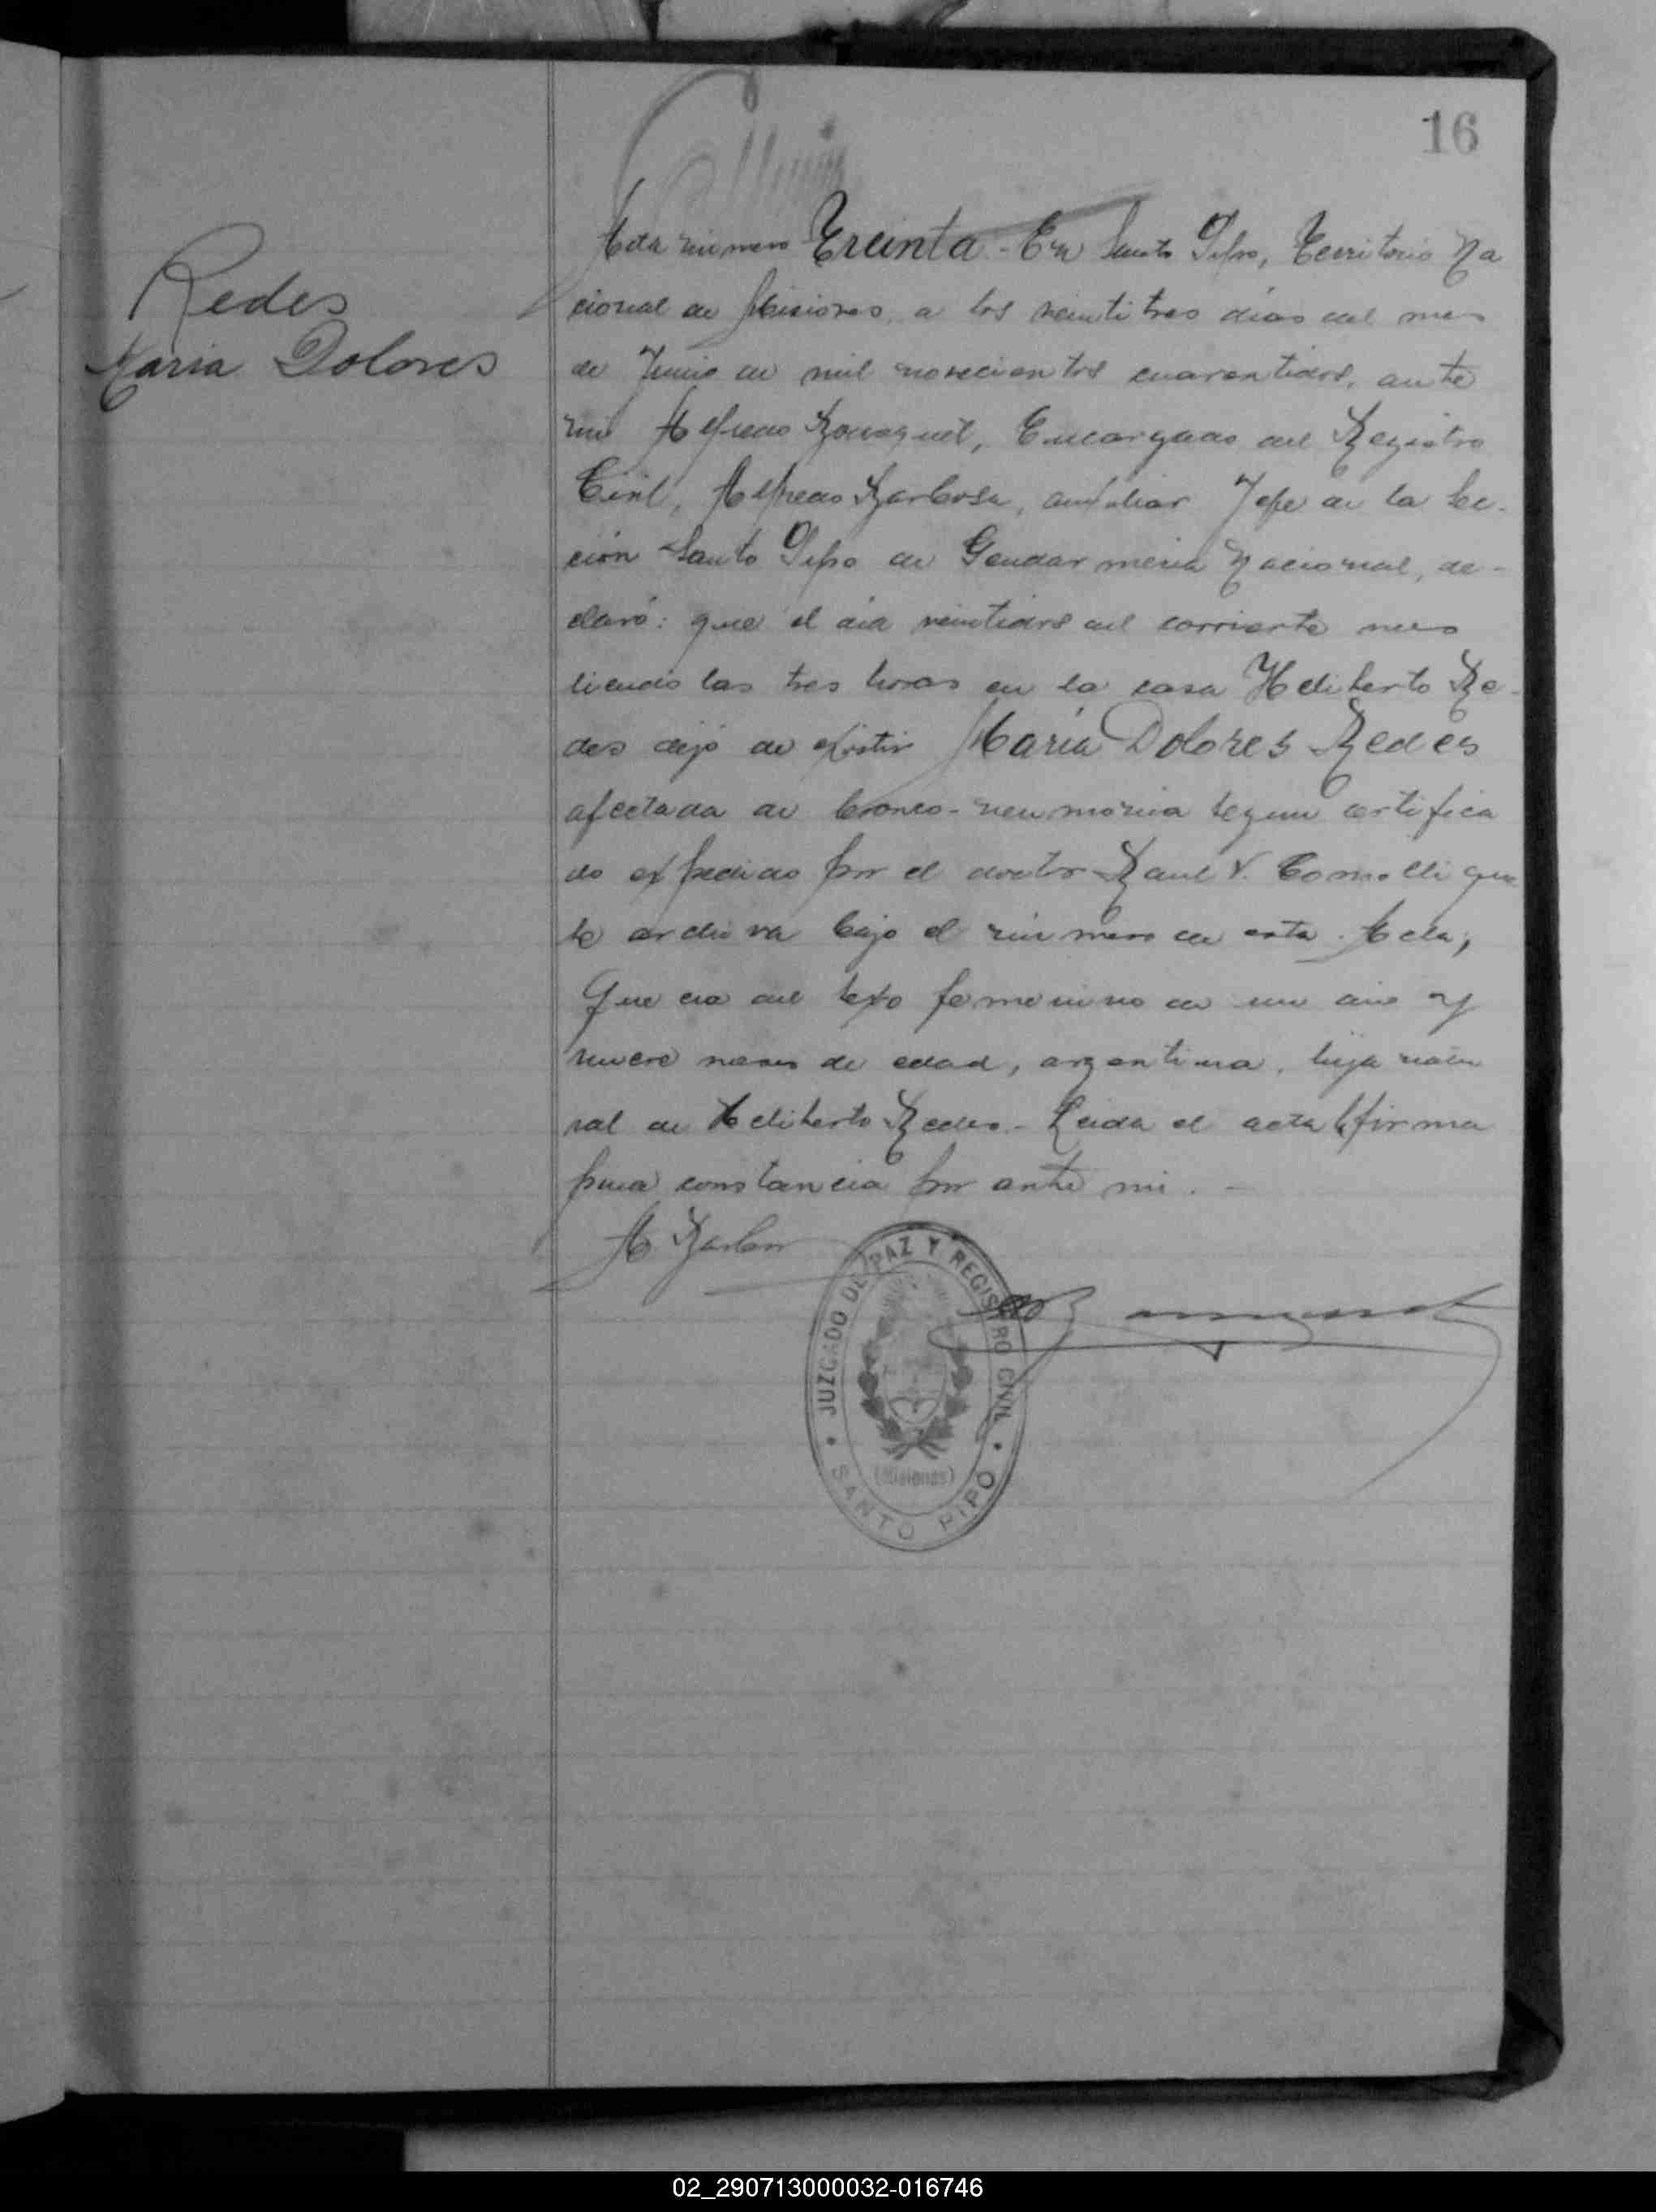 16
Redes
Maria Dolores
Acta número Treinta - En Santo Pipo, Territorio Na
cional de Misiones, a los veintitres días del mes
de Junio de mil novecientos cuarentidos, ante
mi Alfredo, Encargado del Registro
Civil, Alfredo Barbosa, auxiliar Jefe de la Sec-
ción Santo Pipo de Gendarmeria Nacional, de-
claró: que el día veintidos del corriente mes
siendo las tres horas en la casa Heliberto Re-
des dejó de existir María Dolores Redes
afectada de bronco-neumonia segun certifica
do expedido por el doctor Raul V. Comolli que
se archiva bajo el número de esta Acta;
Que era del sexo femenino de un año y
nueve meses de edad, argentina, hija natu
ral de Heliberto Redes - Leida el acta firma
para constancia por ante mi. -
A Barbosa
JUZGADO DE PAZ Y REGISTRO CIVIL
(Misiones)
SANTO PIPO
02_290713000032-016746